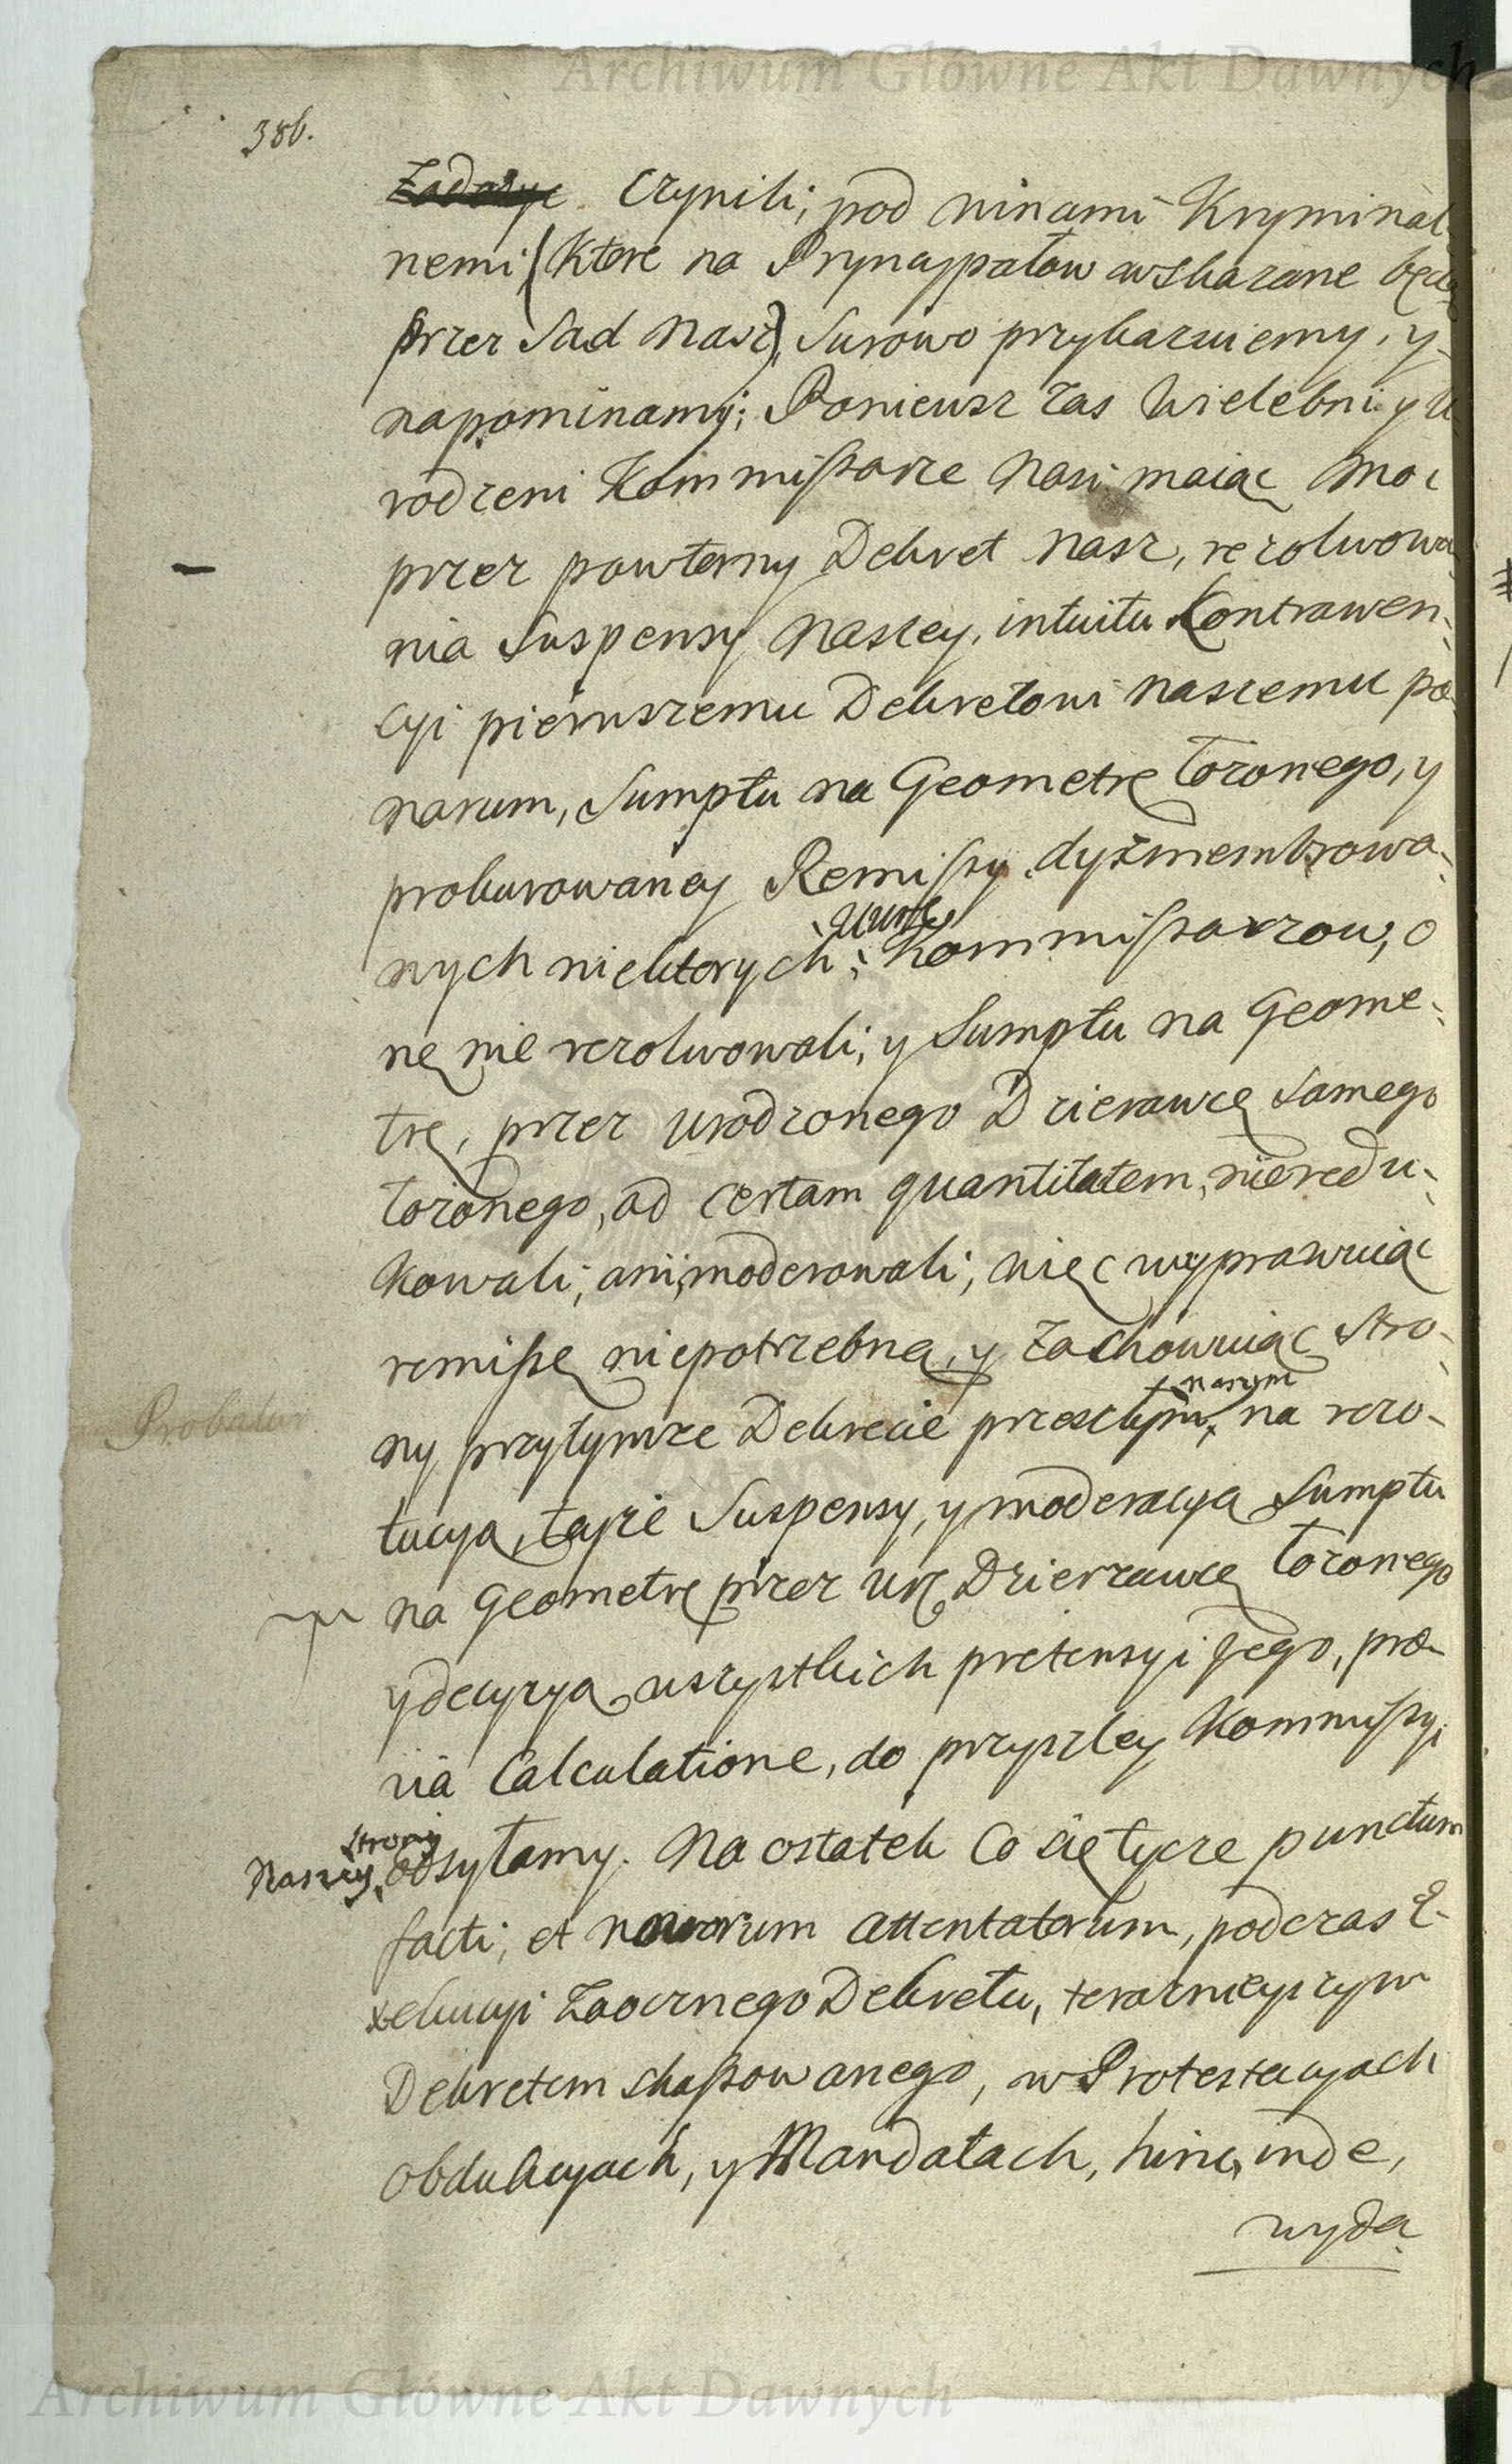 Archiwum Główne Akt Dawnych
386.
Zadosyc czynili; pod winami Kryminal-
nemi (Ktore na Prynaypałow wskazane będą
przez Sad Nasz), Surowo przykazuiemy, y
napominamy; Ponieusz zas Wielebni y U
rodzeni Kommissarze Nasi maiąc Moc
przez powtorny Dekret Nasz, rezolwowa
nia Suspensy Naszey, intuitu Kontrawen-
cyi pierwszemu Dekretowi Naszemu pæ
narum, Sumptu na Geometrę Łozonego, y
prokurowaney Remissy dyzmembrowa-
nych niektorych Kommissarzow, o
nę nie rezolwowali; y Sumptu na Geome-
trę, przez Urodzonego Dzierawcę Samego
łozonego, ad certam quantitatem, nieredu-
kowali; ani moderowali; więc wyprawuiąc
remissę niepotrzebną, y Zachowuiąc Stro-
Probatur
ny przytymze Dekrecie przeszłym, naszym na rezo-
lucyą, teyze Suspensy, y moderacyą Sumptu
na Geometrę przez Ur. Dzierzawcę Łozonego
y decyzyą wszystkich pretensyi Jego, præ-
via Calculatione, do przyszłey Kommissyi
Naszey, Strony odsyłamy. Na ostatek Co się tycze punctum
facti, et novorum attentatorum, podczas E-
xekucyi Zaocznego Dekretu, terazneyszym
Dekretem skassowanego, w Protestacyach
Obdukcyach, y Mandatach, hinc inde,
wyda
Archiwum Główne Akt Dawnych